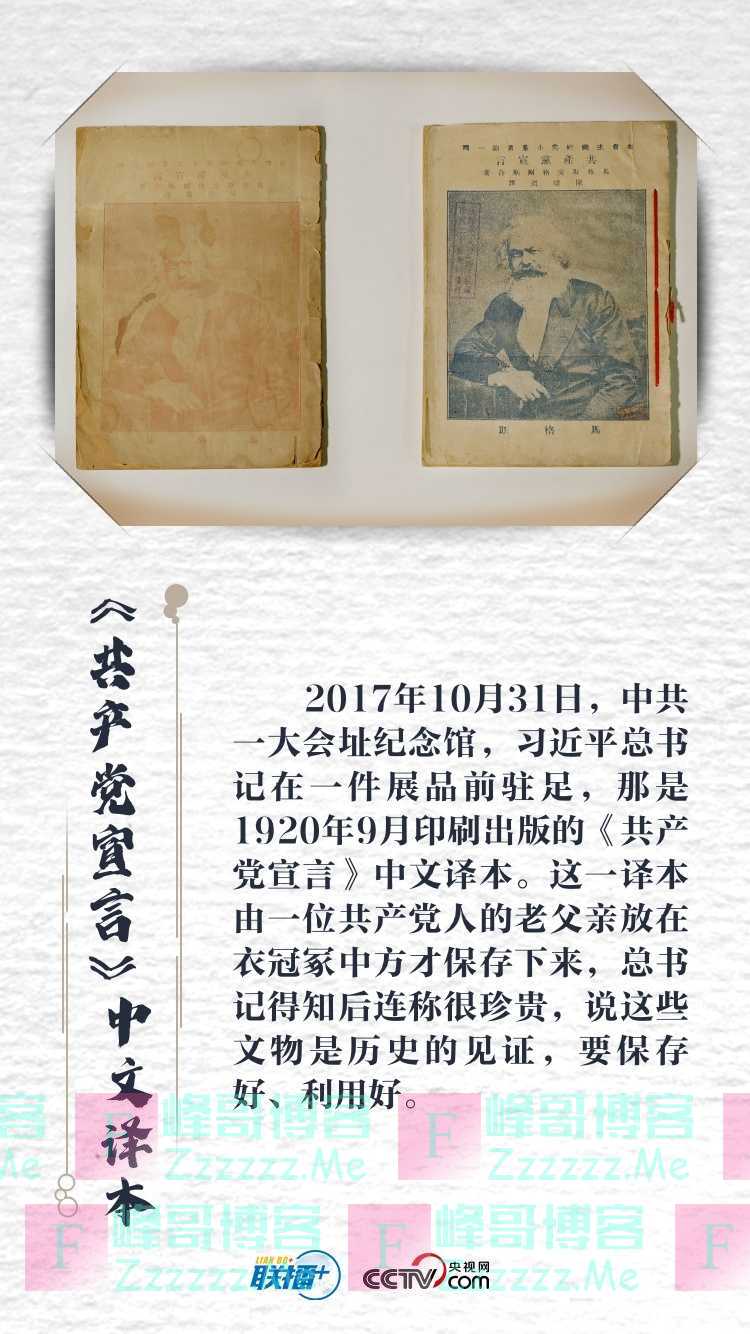 共產黨宣言
馬格斯
《共产党宣言》中文译本
2017年10月31日，中共
一大会址纪念馆，习近平总书
记在一件展品前驻足，那是
1920年9月印刷出版的《共产
党宣言》中文译本。这一译本
由一位共产党人的老父亲放在
衣冠冢中方才保存下来，总书
记得知后连称很珍贵，说这些
文物是历史的见证，要保存
好、利用好。
F 峰哥博客
Zzzzzz.Me
F 峰哥博客
Zzzzzz.Me
LIAN BO+
联播+
CCTV.com 央视网